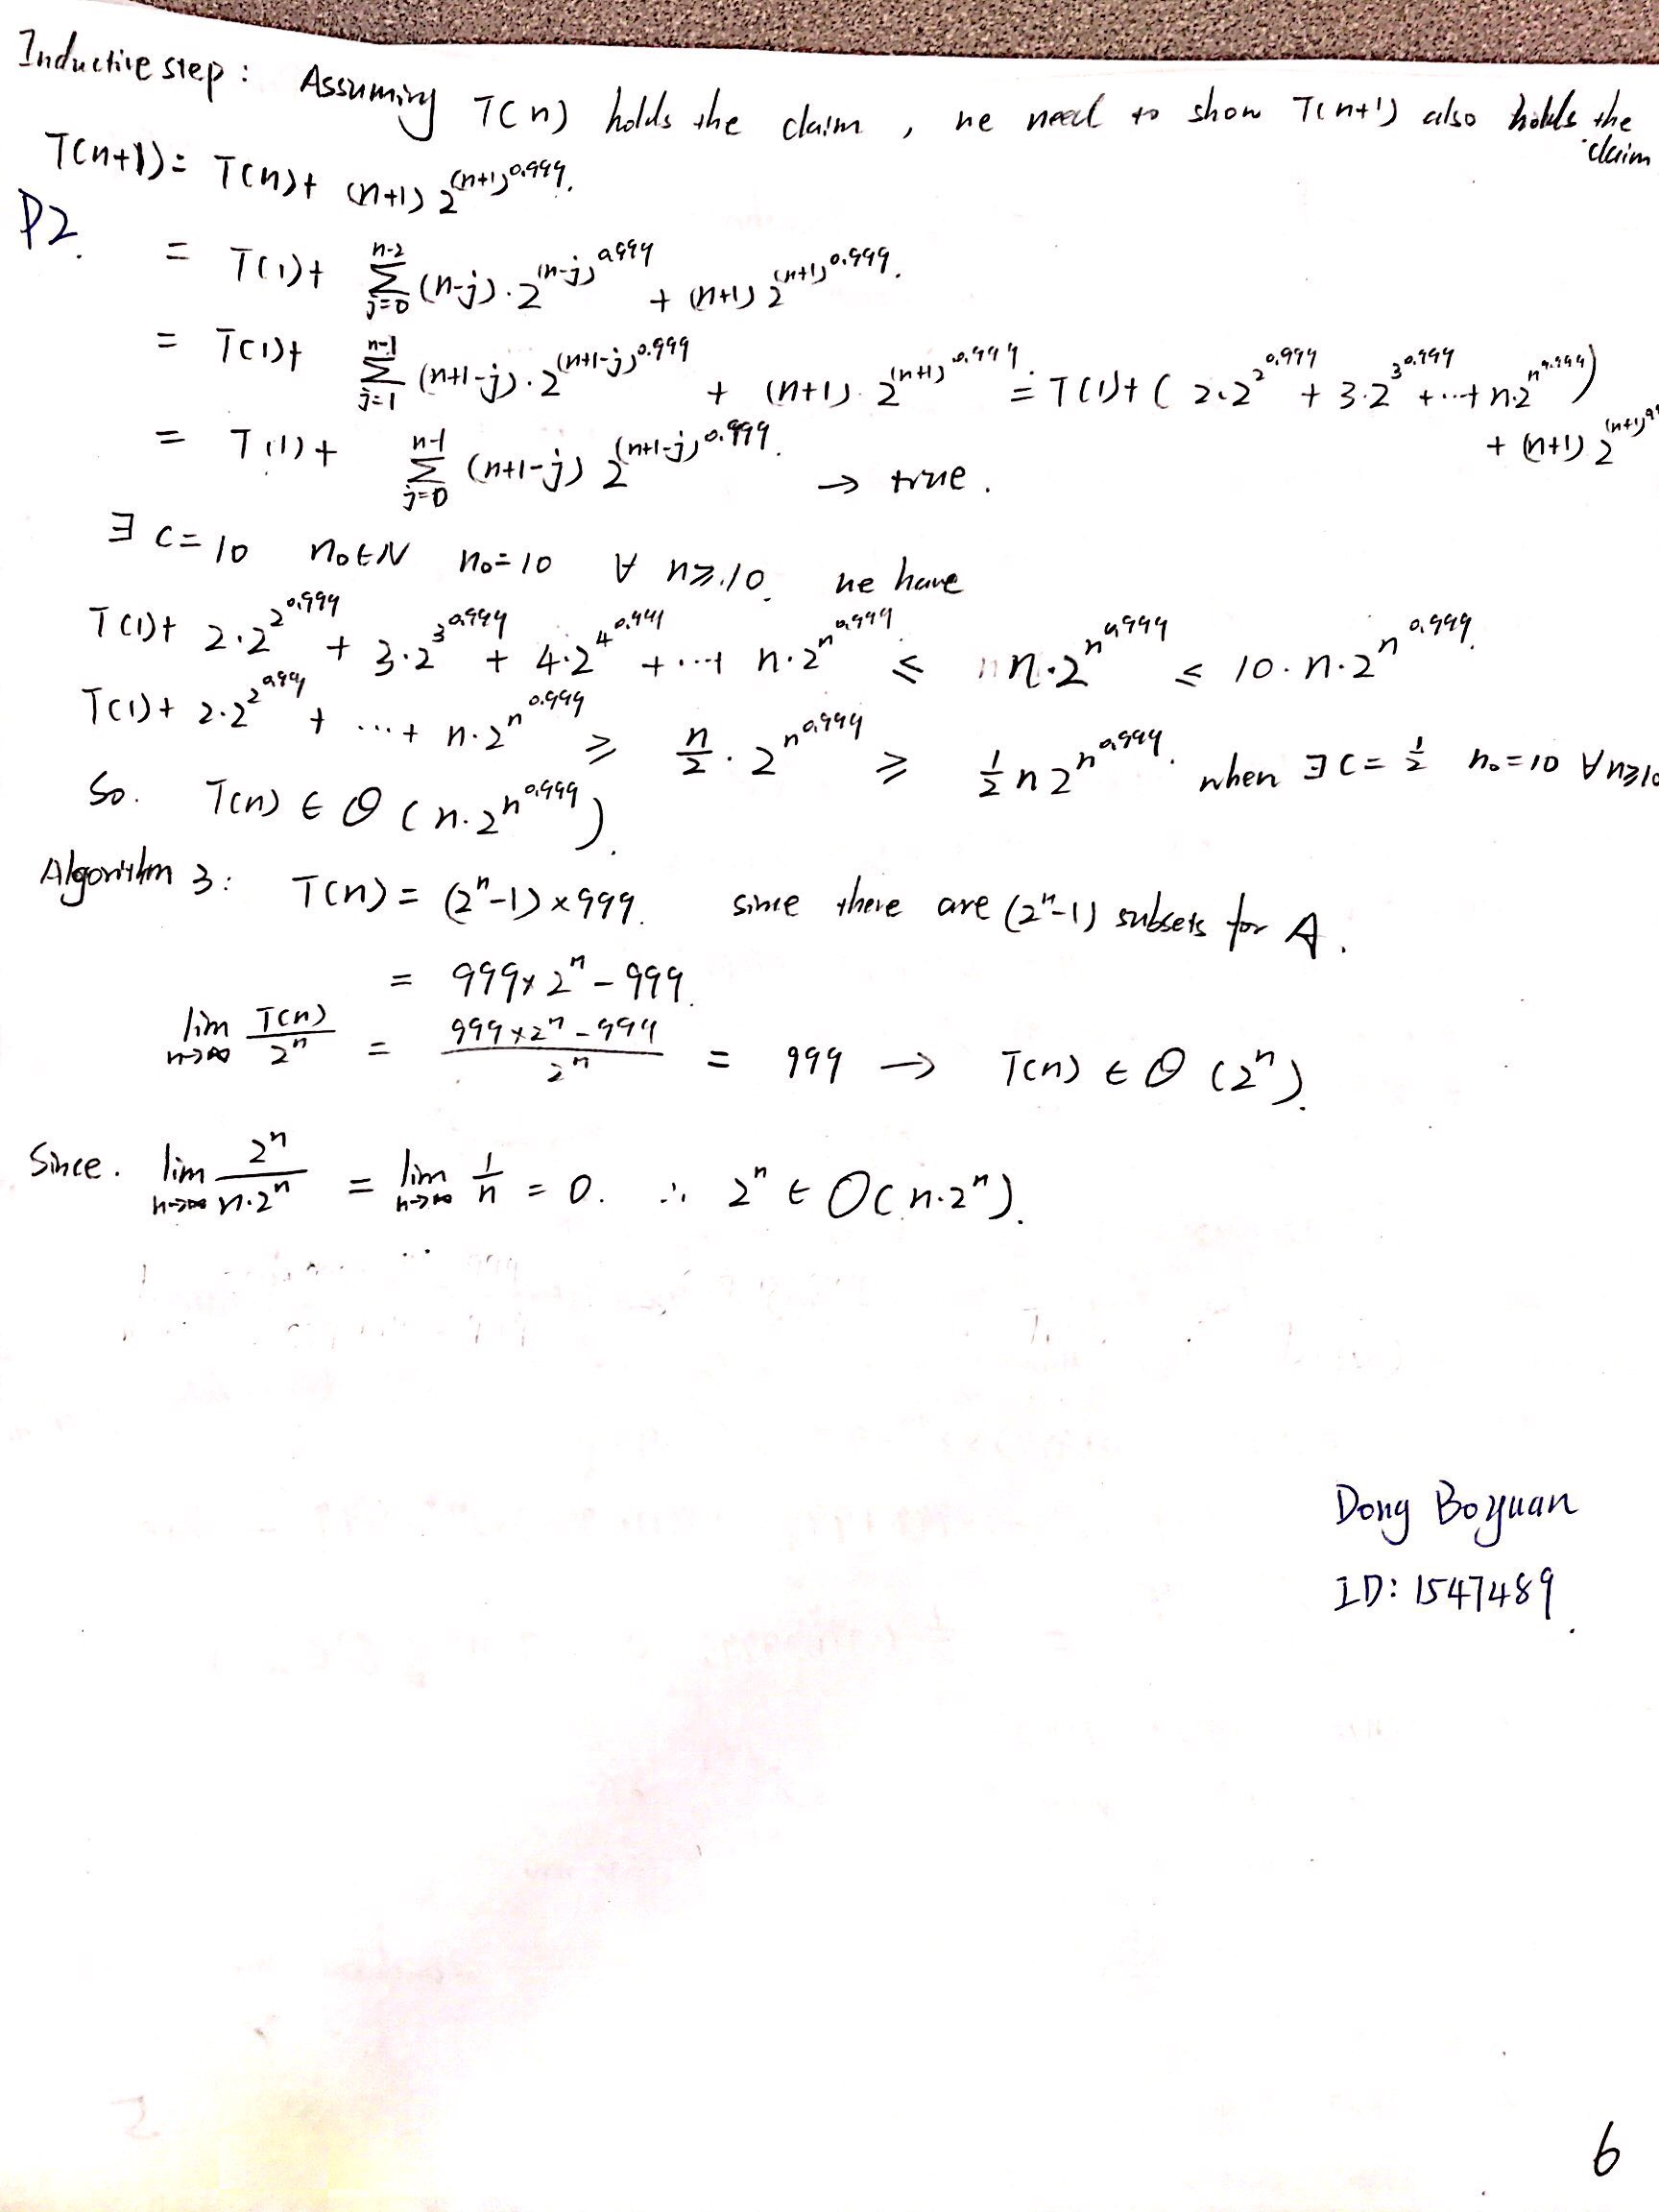 Inductive step: Assuming T(n) holds the claim, we need to show T(n+1) also holds the claim
T(n+1) = T(n) + (n+1) 2^{(n+1)^{0.999}}.
P2.
= T(1) + \sum_{j=0}^{n-2} (n-j)·2^{(n-j)^{0.999}} + (n+1) 2^{(n+1)^{0.999}}.
= T(1) + \sum_{j=1}^{n-1} (n+1-j)·2^{(n+1-j)^{0.999}} + (n+1)·2^{(n+1)^{0.999}} = T(1) + (2·2^{2^{0.999}} + 3·2^{3^{0.999}} + ... + n·2^{n^{0.999}}) + (n+1) 2
= T(1) + \sum_{j=0}^{n-1} (n+1-j) 2^{(n+1-j)^{0.999}}. → true.
∃ c=10 n₀∈N n₀=10 ∀ n≥10. we have
T(1) + 2·2^{2^{0.999}} + 3·2^{3^{0.999}} + 4·2^{4^{0.999}} + ... + n·2^{n^{0.999}} ≤ n·2^{n^{0.999}} ≤ 10·n·2^{n^{0.999}}.
T(1) + 2·2^{2^{0.999}} + ... + n·2^{n^{0.999}} ≥ \frac{n}{2}·2^{n^{0.999}} ≥ \frac{1}{2} n 2^{n^{0.999}}. when ∃ c=\frac{1}{2} n₀=10 ∀n≥10
So. T(n) ∈ Θ(n·2^{n^{0.999}}).
Algorithm 3: T(n) = (2^n-1)×999. since there are (2^n-1) subsets for A.
= 999×2^n - 999.
\lim_{n→∞} \frac{T(n)}{2^n} = \frac{999×2^n-999}{2^n} = 999 → T(n) ∈ Θ(2^n).
Since. \lim_{n→∞} \frac{2^n}{n·2^n} = \lim_{n→∞} \frac{1}{n} = 0. ∴ 2^n ∈ O(n·2^n).
Dong Boyuan
ID: 1547489.
6